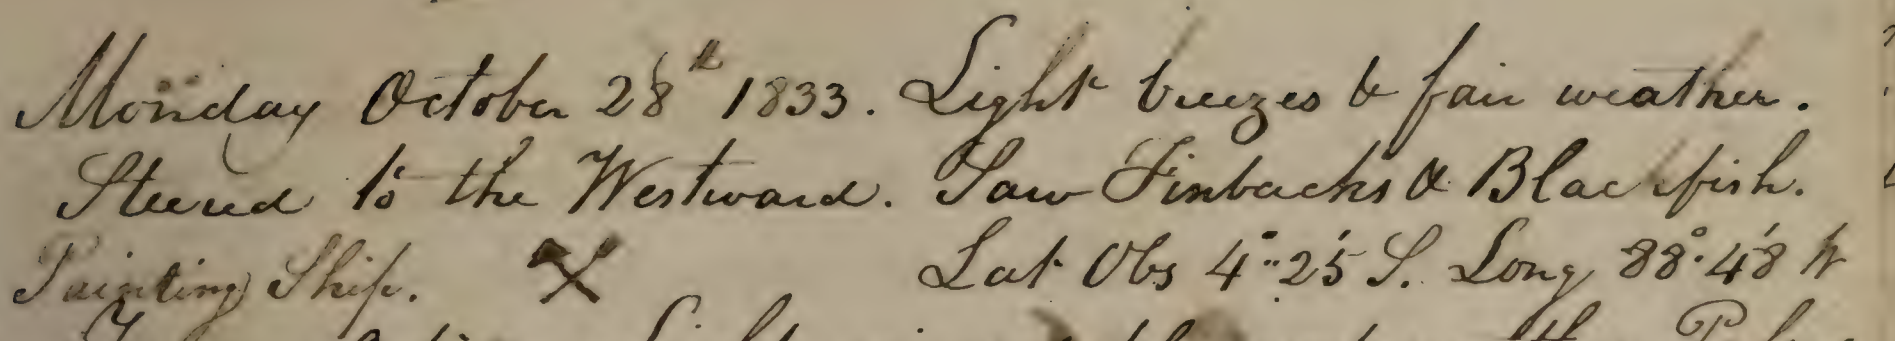 Monday October 28th 1833. Light breezes & fair weather.
Steered to the Westward. Saw Finbacks & Blackfish.
Painting Ship. X Lat Obs 4°..25' S. Long 88°.48' W